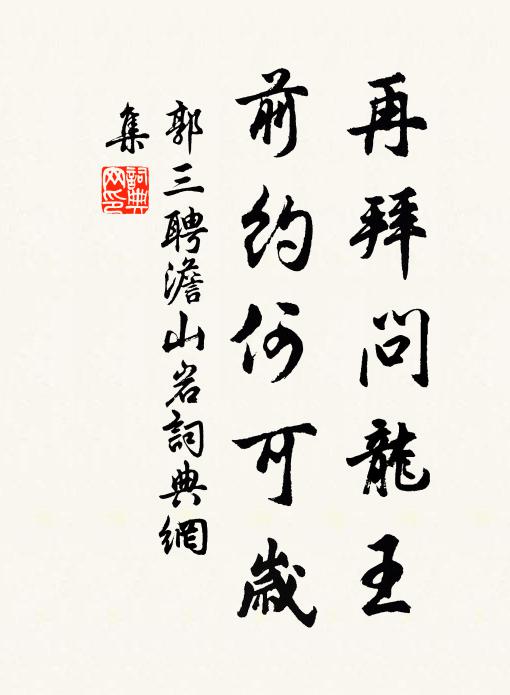 再拜問龍王
前約何可歲
郭三聘澹山岩詞典網
集
詞典网印